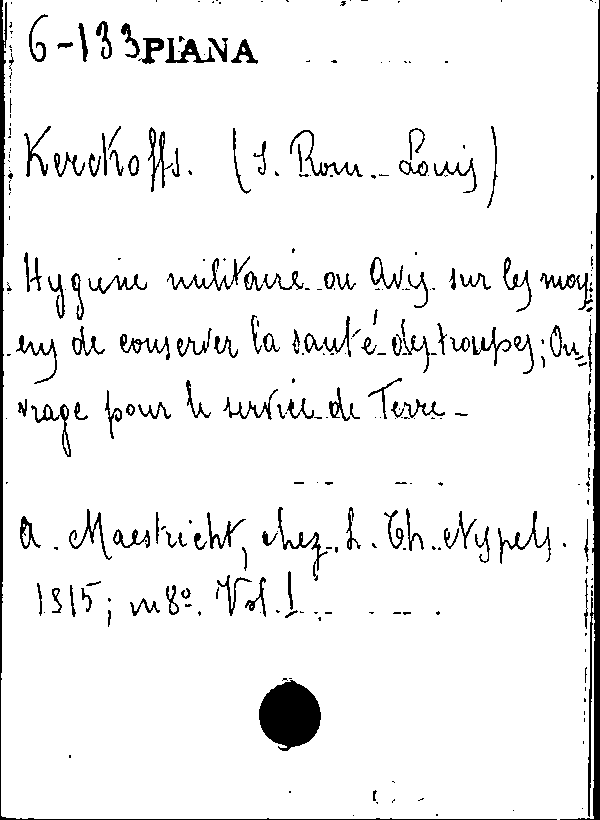 6-133 PIANA
Kerckoffs. (J. Rom.- Louis)
Hygiene militaire ou Avis sur les moy=
ens de conserver la santé des troupes; Ou=
vrage pour le service de Terre -
A. Maestricht, chez. L. Th. Nypels.
1815; in 8º. Vol. 1.